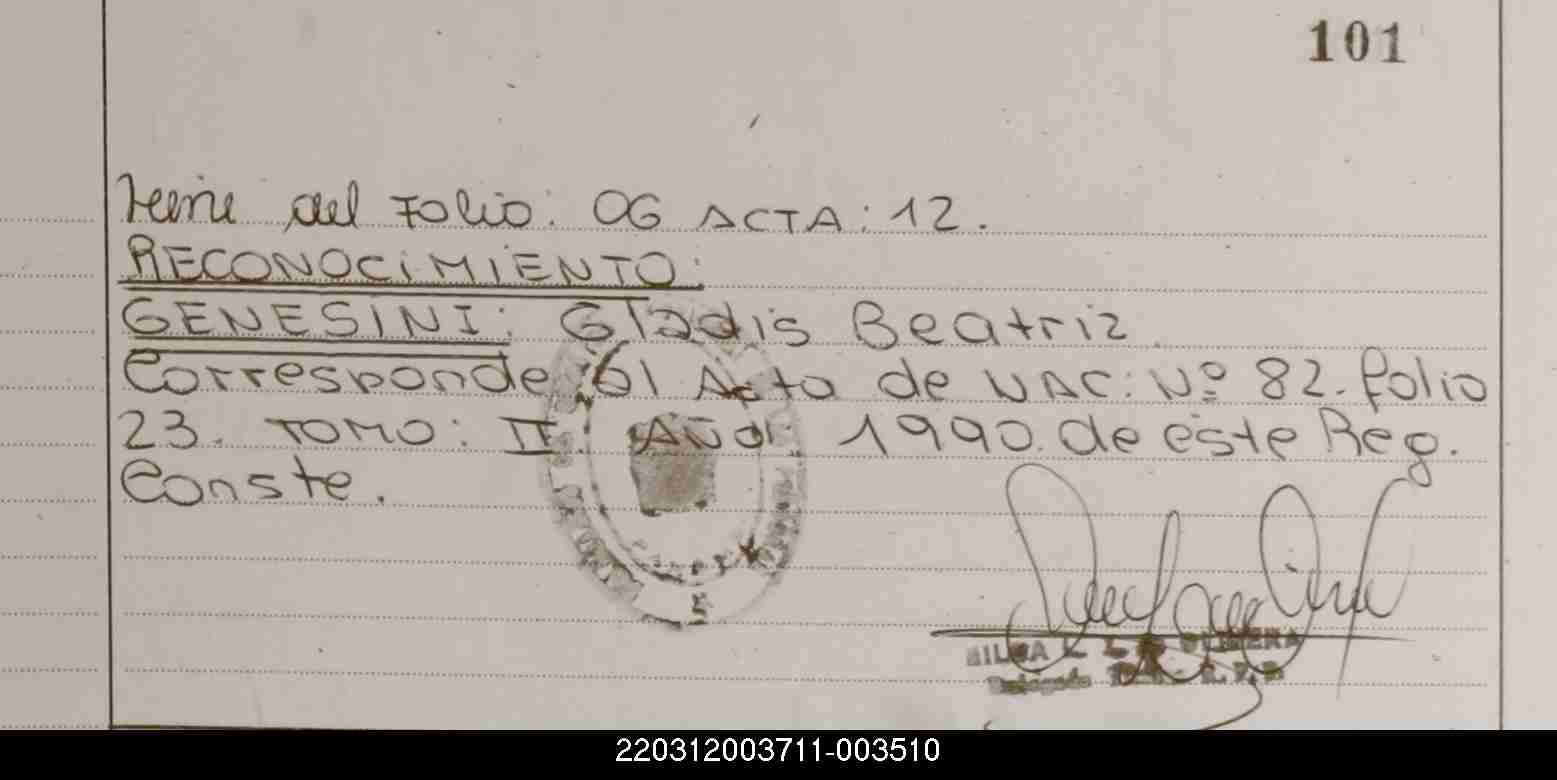 101
Viene del Folio: 06 ACTA: 12.
RECONOCIMIENTO:
GENESINI: Gladis Beatriz.
Corresponde al Acta de NAC: Nº 82. folio
23. TOMO: II. Año: 1990. de este Reg.
Conste.
OLIVERA
Delegada
220312003711-003510